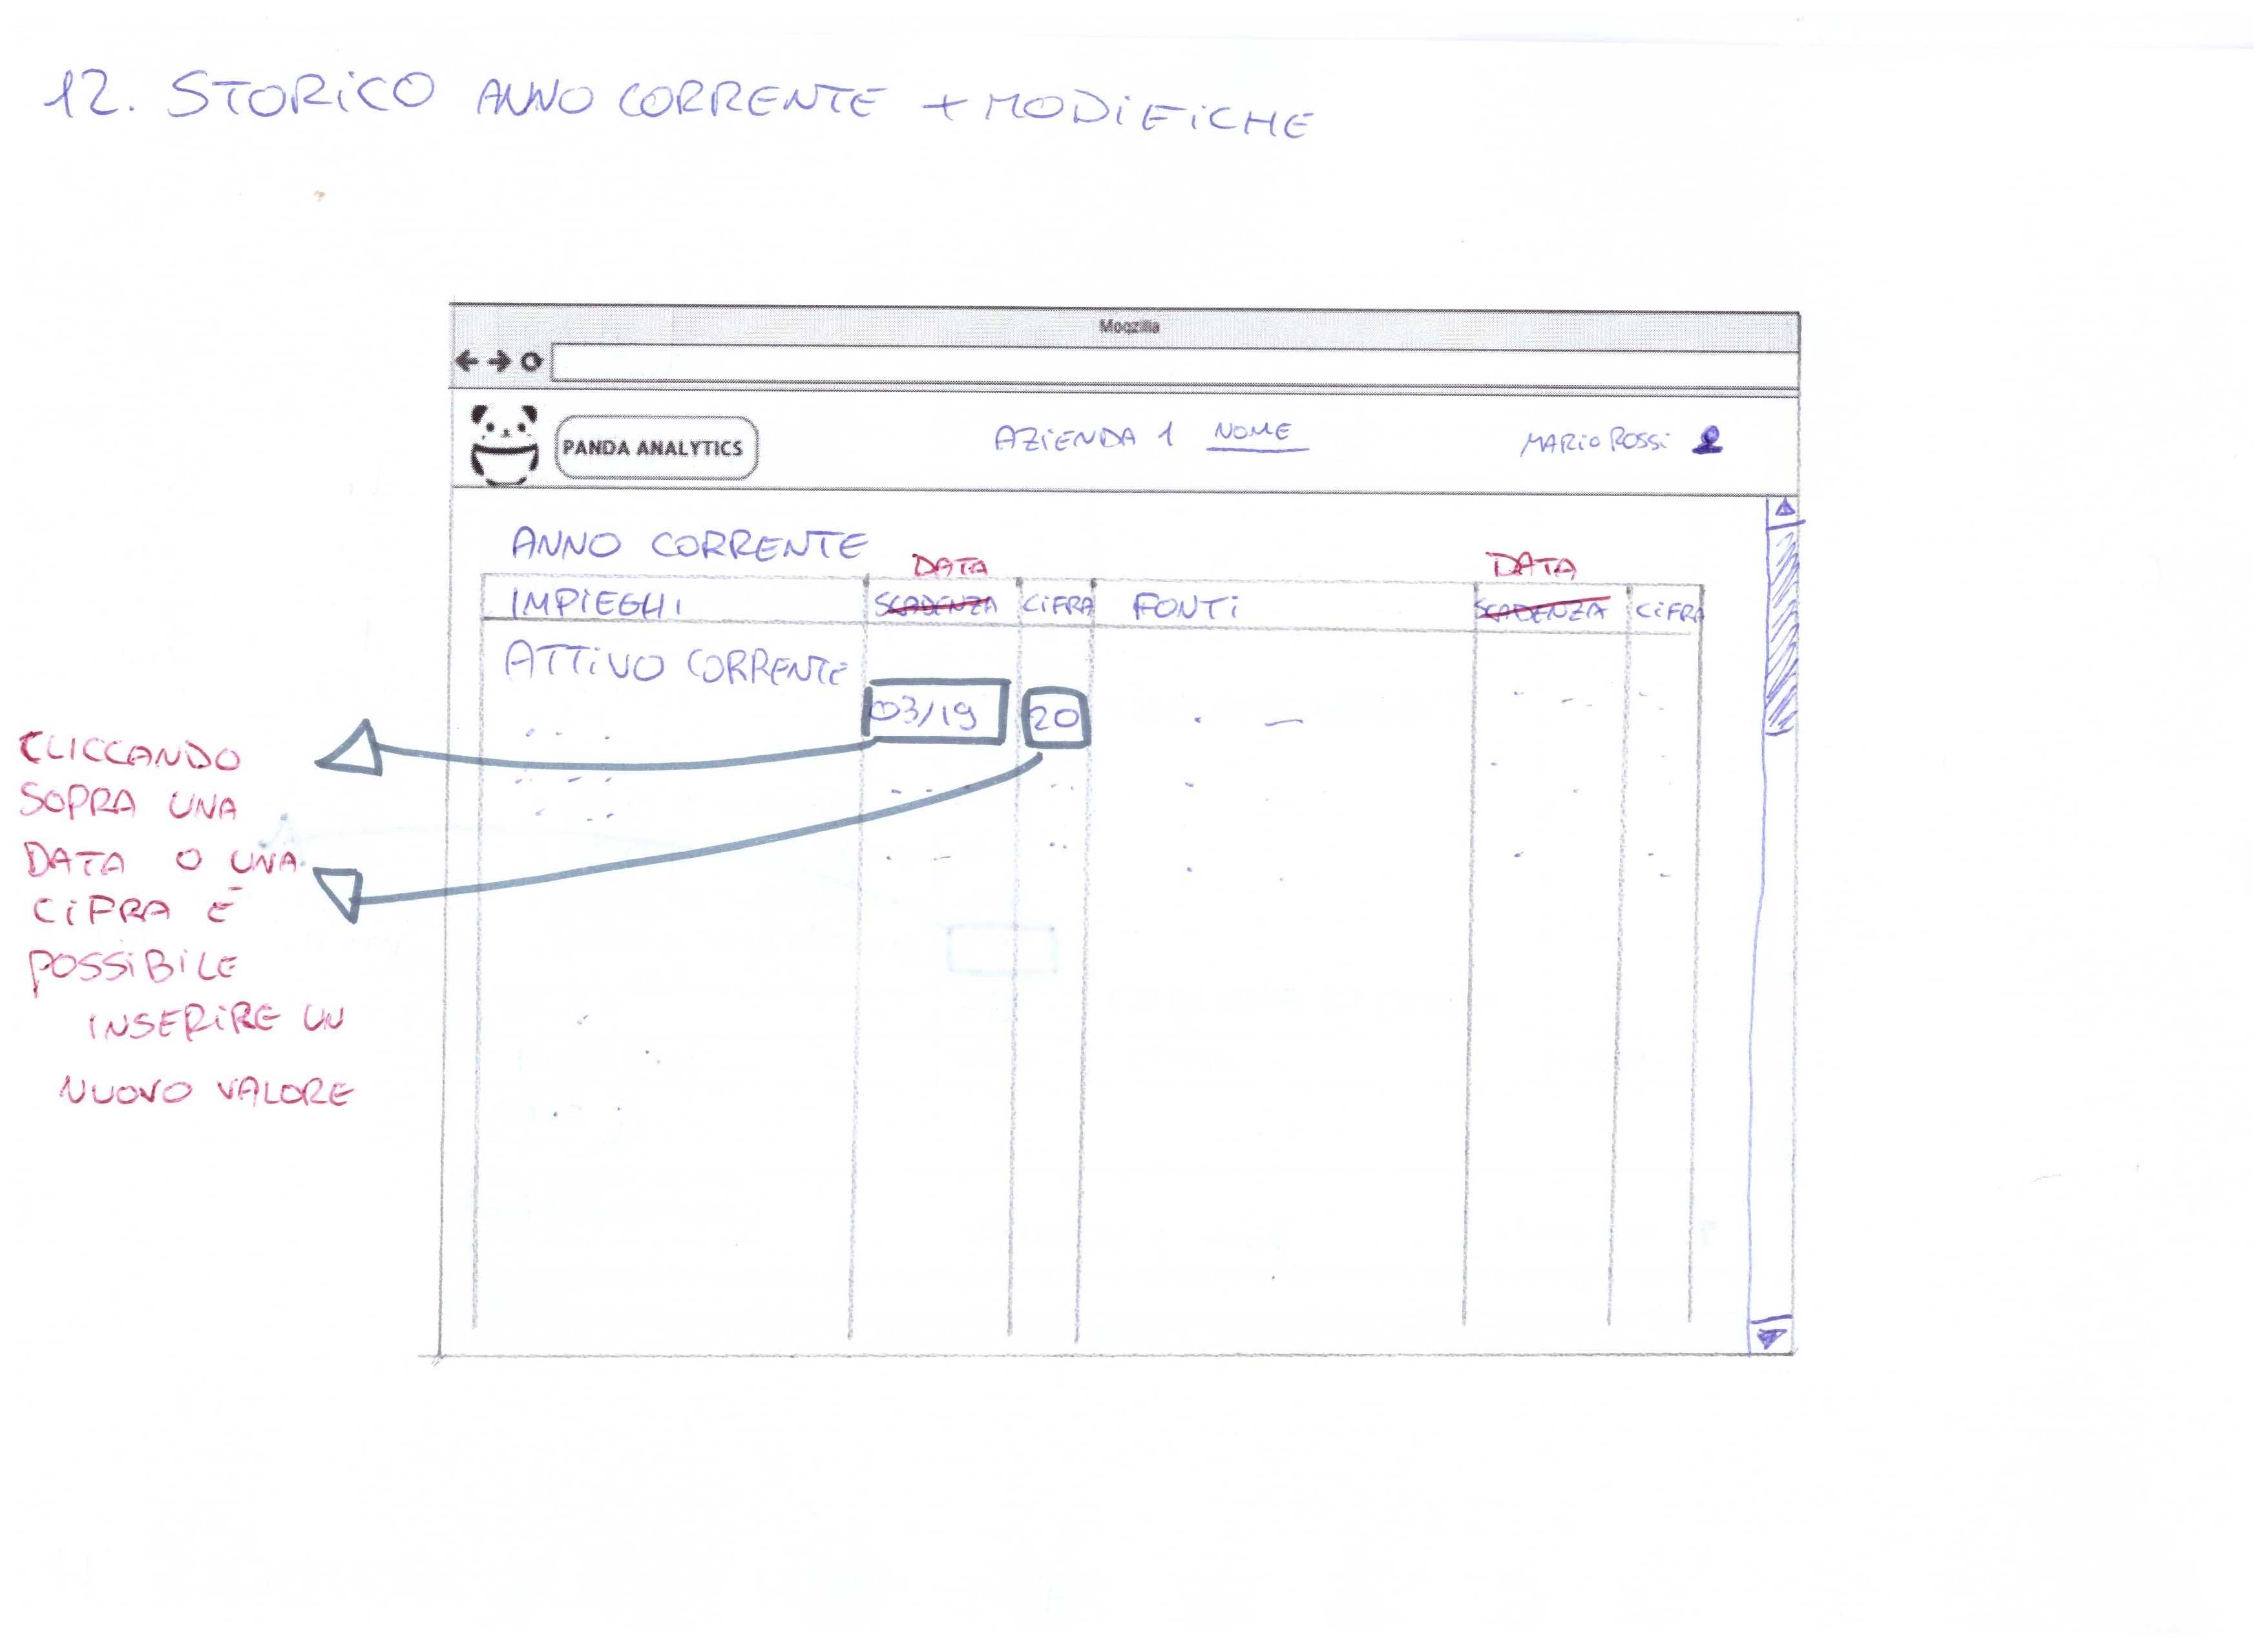 12. STORICO ANNO CORRENTE + MODIFICHE
Moqzilla
PANDA ANALYTICS
AZIENDA 1 NOME
MARIO ROSSI
ANNO CORRENTE
DATA
DATA
IMPIEGHI SCADENZA CIFRA FONTI SCADENZA CIFRA
ATTIVO CORRENTE
03/19 20
CLICCANDO
SOPRA UNA
DATA O UNA
CIFRA È
POSSIBILE
INSERIRE UN
NUOVO VALORE